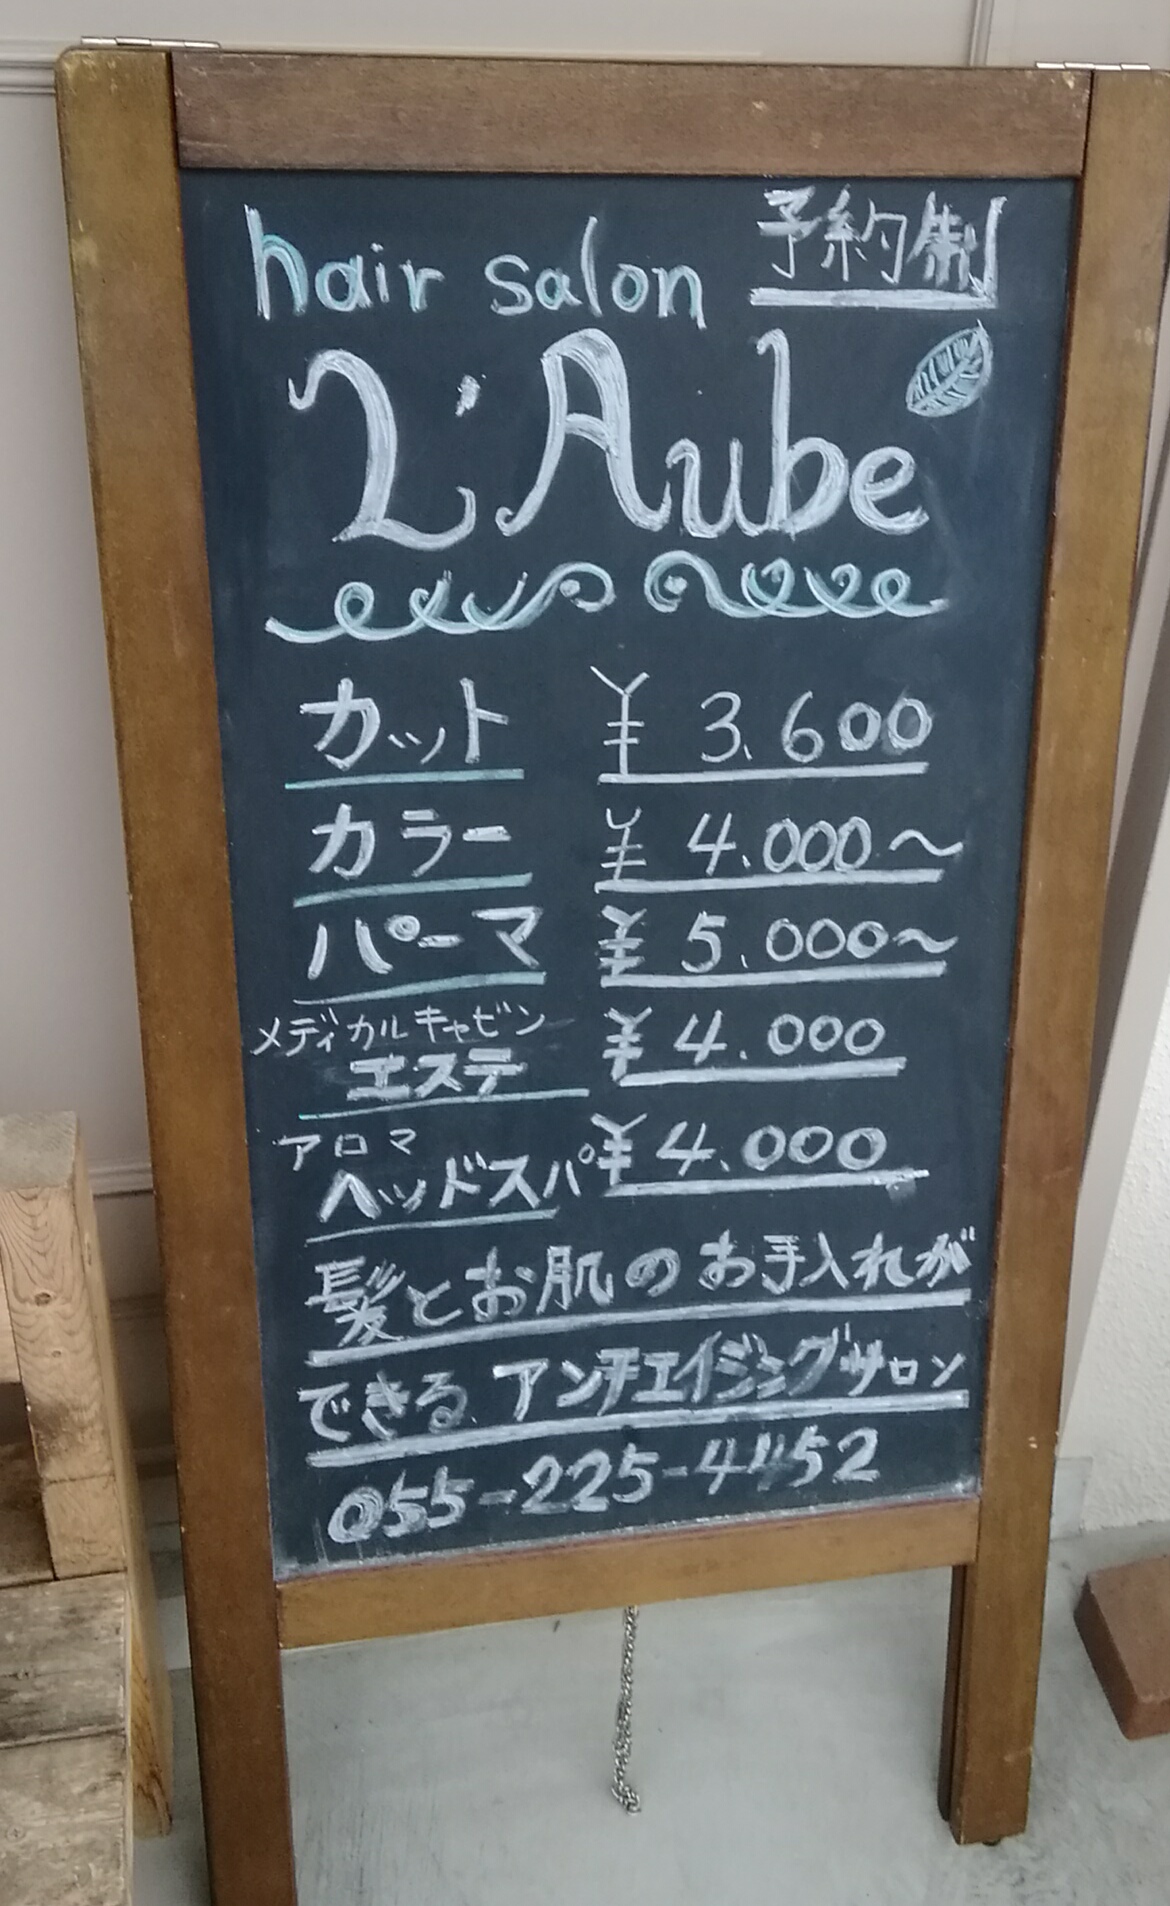 hair salon 予約制
L'Aube
カット ¥3.600
カラー ¥4.000～
パーマ ¥5.000～
メディカルキャビン
エステ ¥4.000
アロマ
ヘッドスパ ¥4.000
髪とお肌のお手入れが
できる アンチエイジングサロン
055-225-4452